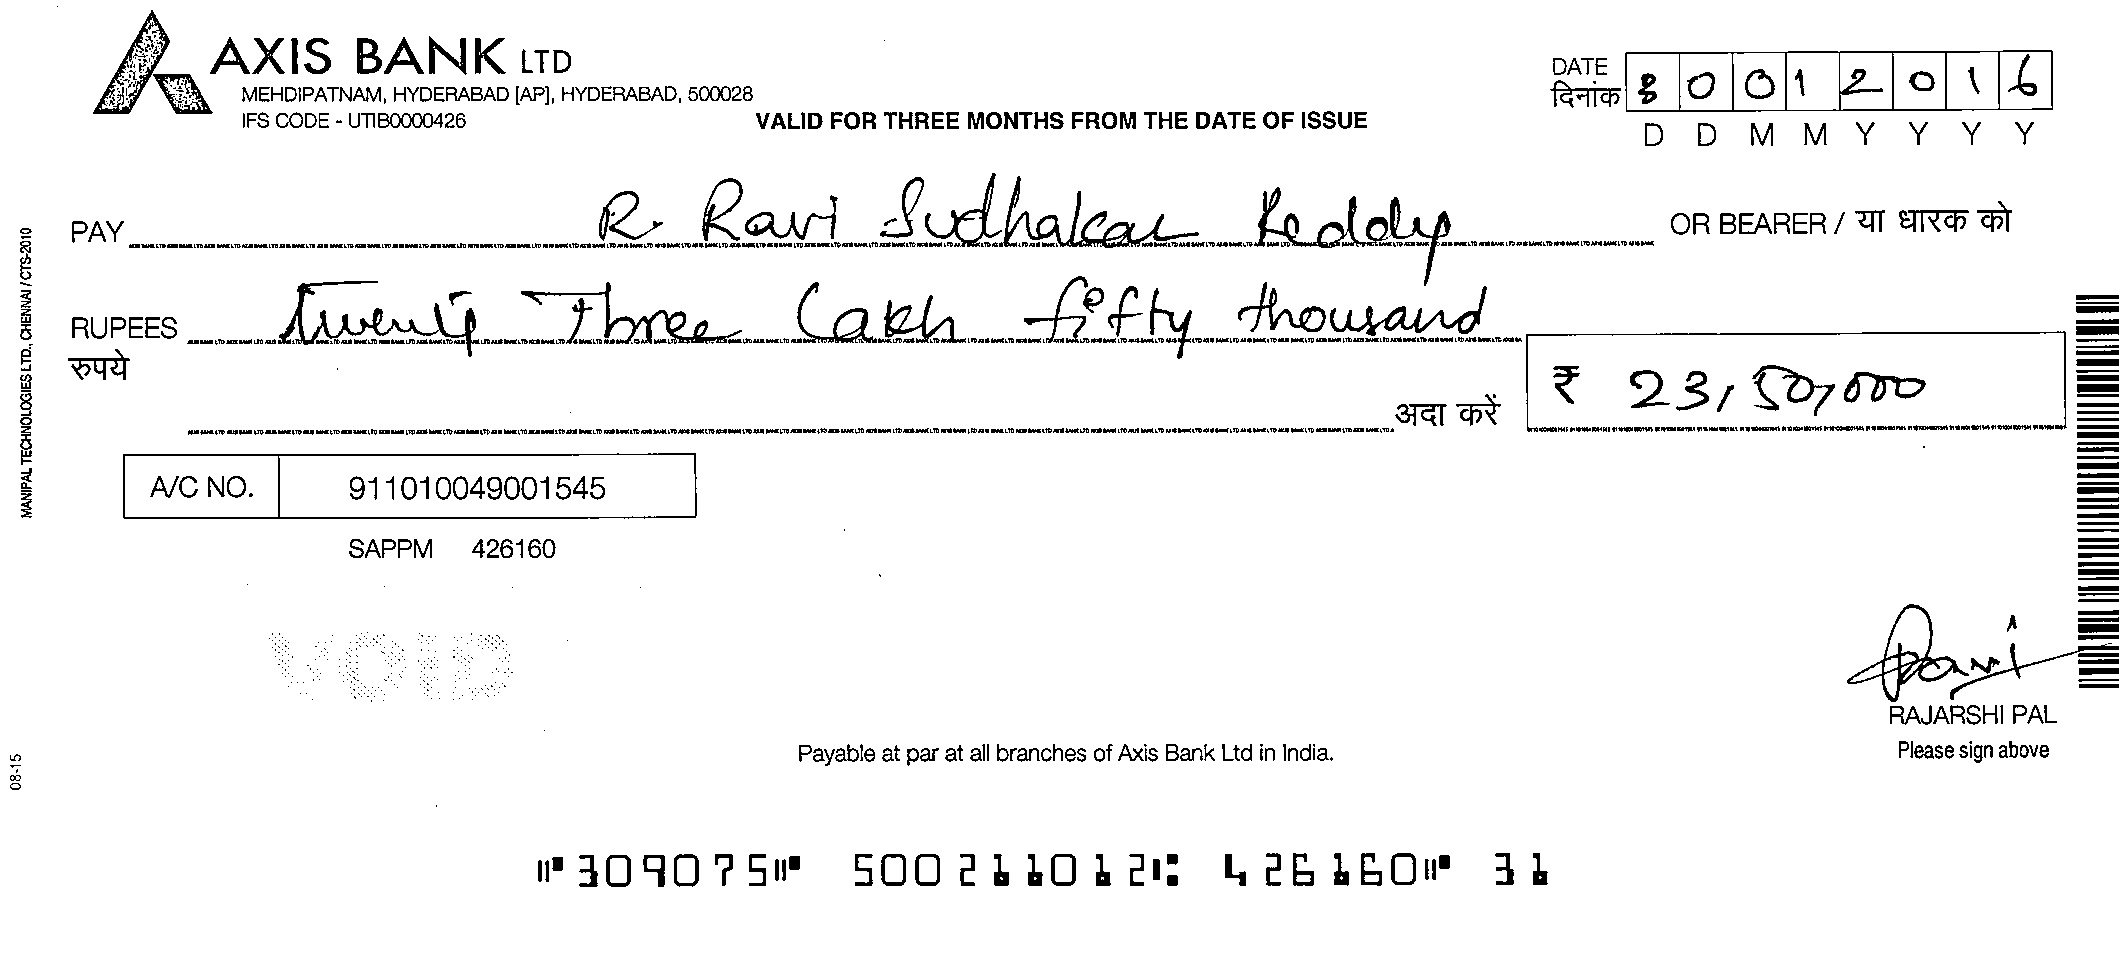 AXIS BANK LTD
MEHDIPATNAM, HYDERABAD [AP], HYDERABAD, 500028
IFS CODE - UTIB0000426
VALID FOR THREE MONTHS FROM THE DATE OF ISSUE
DATE
दिनांक 0 0 1 2 0 1 6
D D M M Y Y Y Y
PAY R. Ravi Sudhakar Reddy OR BEARER / या धारक को
RUPEES Twenty Three Lakh fifty thousand
रुपये
अदा करें ₹ 23,50,000
A/C NO. 911010049001545
SAPPM 426160
VOID
RAJARSHI PAL
Please sign above
Payable at par at all branches of Axis Bank Ltd in India.
⑈309075⑈ 500211012⑆ 426160⑈ 31
MANIPAL TECHNOLOGIES LTD., CHENNAI / CTS-2010
08-15